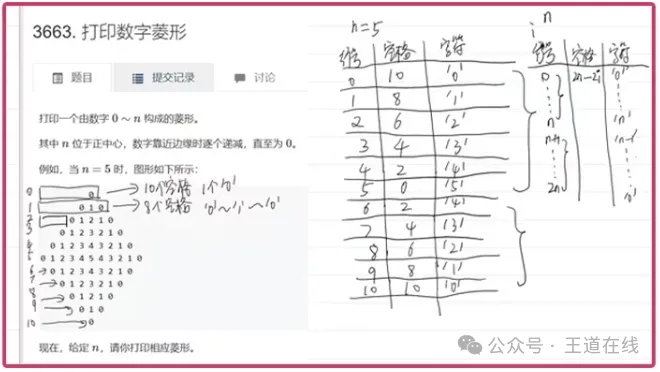 3663. 打印数字菱形
题目
提交记录
讨论
打印一个由数字 0 ~ n 构成的菱形。
其中 n 位于正中心，数字靠近边缘时逐个递减，直至为 0。
例如，当 n = 5 时，图形如下所示：
0 0 → 10个空格 1个'0'
1 0 1 0 → 8个空格 '0'~'1'~'0'
2 0 1 2 1 0
3 0 1 2 3 2 1 0
4 0 1 2 3 4 3 2 1 0
5 0 1 2 3 4 5 4 3 2 1 0
6 0 1 2 3 4 3 2 1 0
7 0 1 2 3 2 1 0
8 0 1 2 1 0
9 0 1 0
10 0
现在，给定 n，请你打印相应菱形。
n=5
编号 空格 字符
0 10 '0'
1 8 '1'
2 6 '2'
3 4 '3'
4 2 '4'
5 0 '5'
6 2 '4'
7 4 '3'
8 6 '2'
9 8 '1'
10 10 '0'
n
i
编号 空格 字符
0 2n-2i '0'
n 'n'
n+1 'n-1'
2n '0'
公众号 · 王道在线